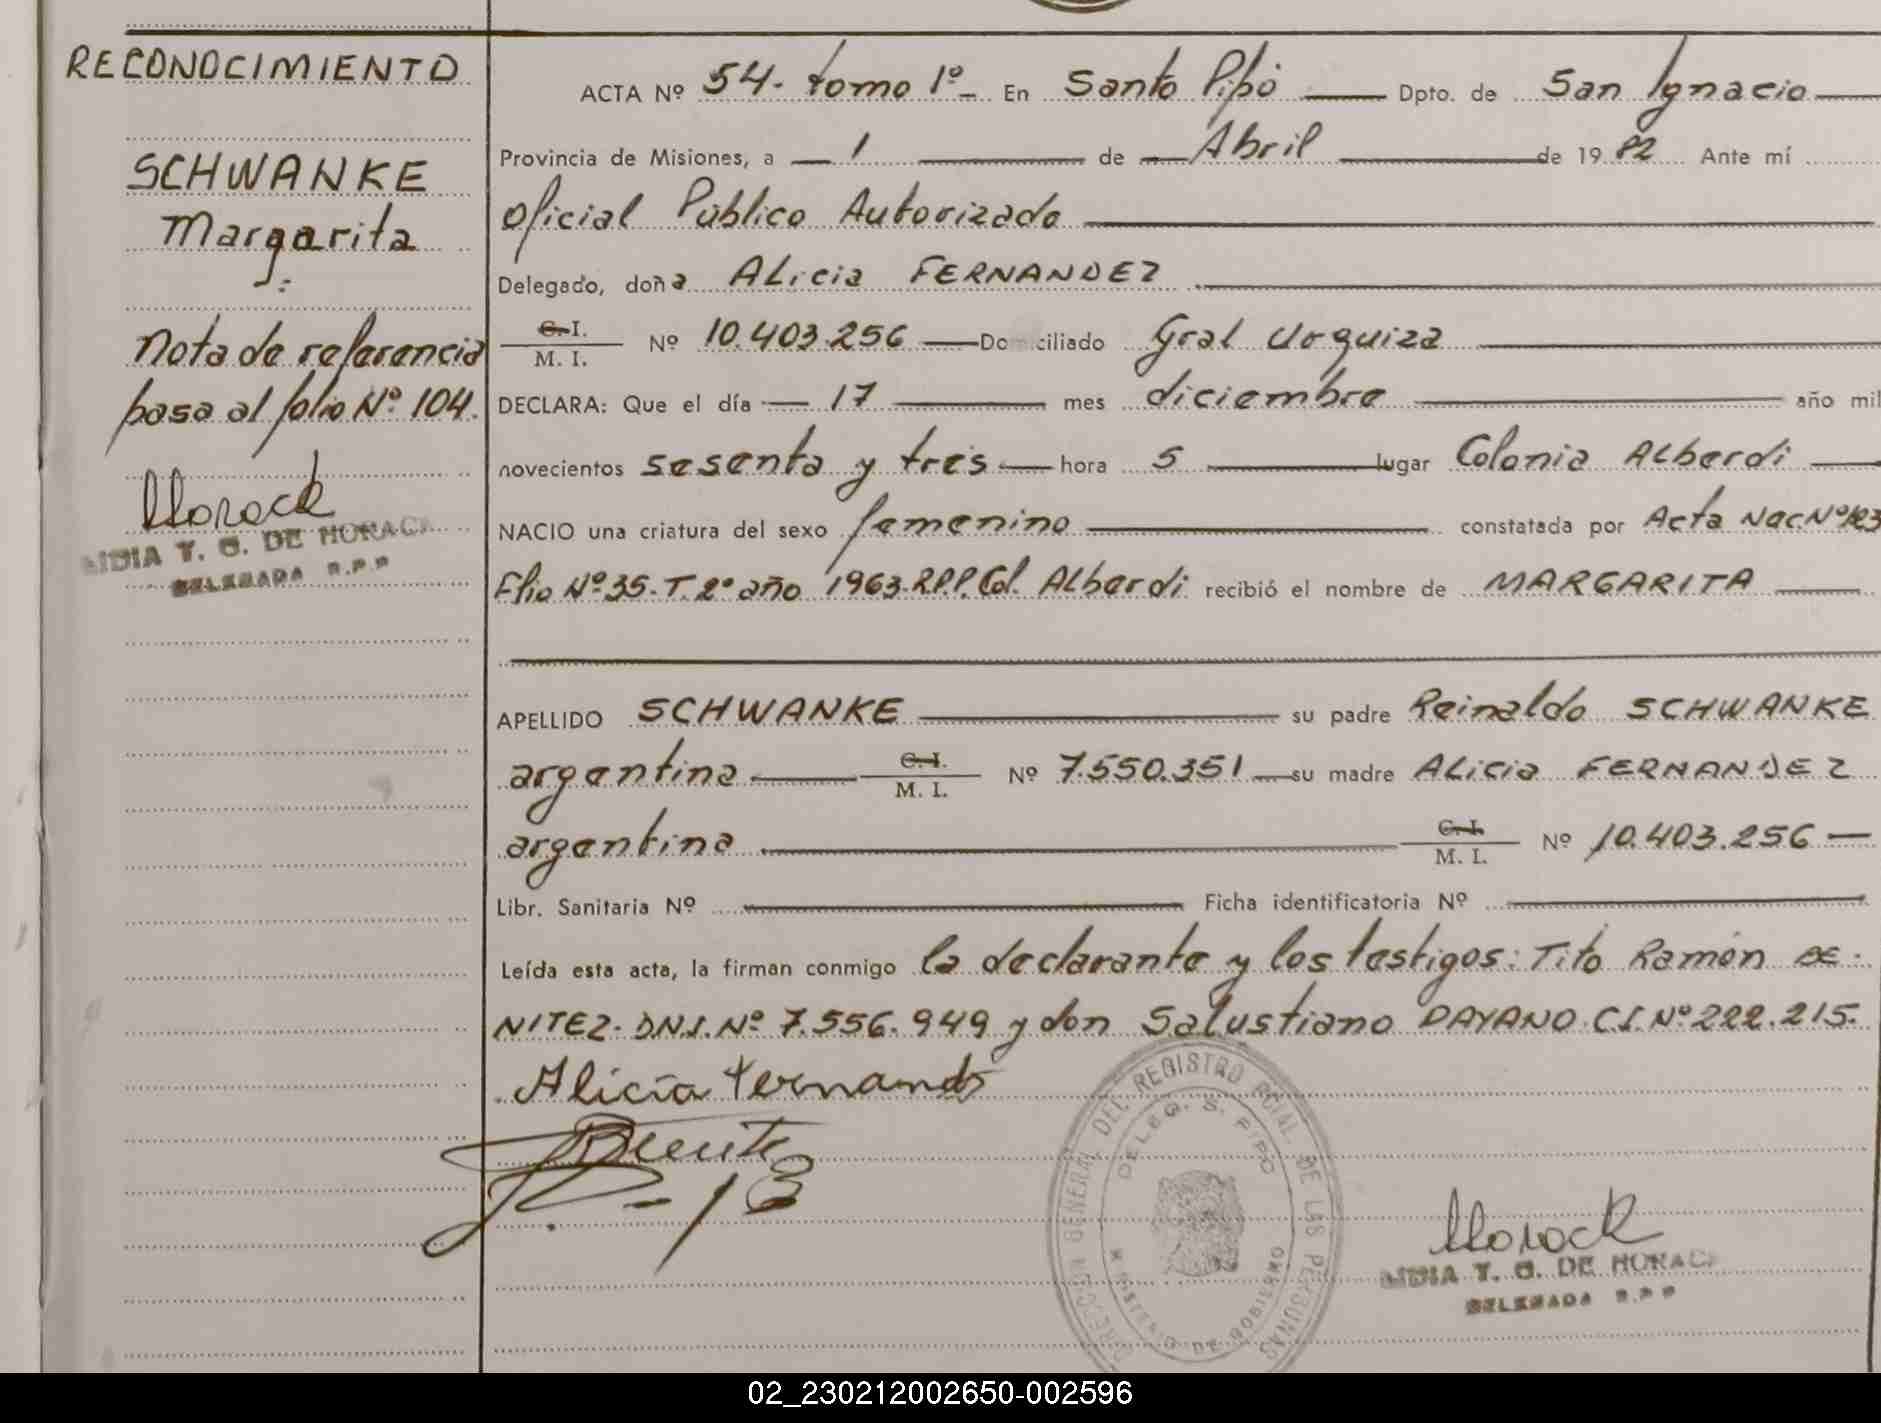 RECONOCIMIENTO
SCHWANKE
Margarita
Nota de referencia
pasa al folio Nº 104.
LIDIA T. G. DE HORACK
DELEGADA R.P.P
ACTA Nº 54. tomo 1º En Santo Pipó Dpto. de San Ignacio
Provincia de Misiones, a 1 de Abril de 1982 Ante mí
Oficial Público Autorizado
Delegado, doña Alicia FERNANDEZ
C. I. / M. I. Nº 10.403.256 Domiciliado Gral Urquiza
DECLARA: Que el día 17 mes diciembre año mil
novecientos sesenta y tres hora 5 lugar Colonia Alberdi
NACIO una criatura del sexo femenino constatada por Acta Nac Nº 123
Flio Nº 35. T. 2º año 1963. R.P.P. Col. Alberdi recibió el nombre de MARGARITA
APELLIDO SCHWANKE su padre Reinaldo SCHWANKE
argentina C. I. / M. I. Nº 7.550.351 su madre Alicia FERNANDEZ
argentina C. I. / M. I. Nº 10.403.256
Libr. Sanitaria Nº Ficha identificatoria Nº
Leída esta acta, la firman conmigo la declarante y los testigos: Tito Ramón BE-
NITEZ. D.N.I. Nº 7.556.949 y don Salustiano DAYANO C.I. Nº 222.215.
Alicia Fernandez
DIRECCION GENERAL DEL REGISTRO PCIAL. DE LAS PERSONAS
DELEG. S. PIPO
MINISTERIO DE GOBIERNO
LIDIA T. G. DE HORACK
DELEGADA R.P.P
02_230212002650-002596